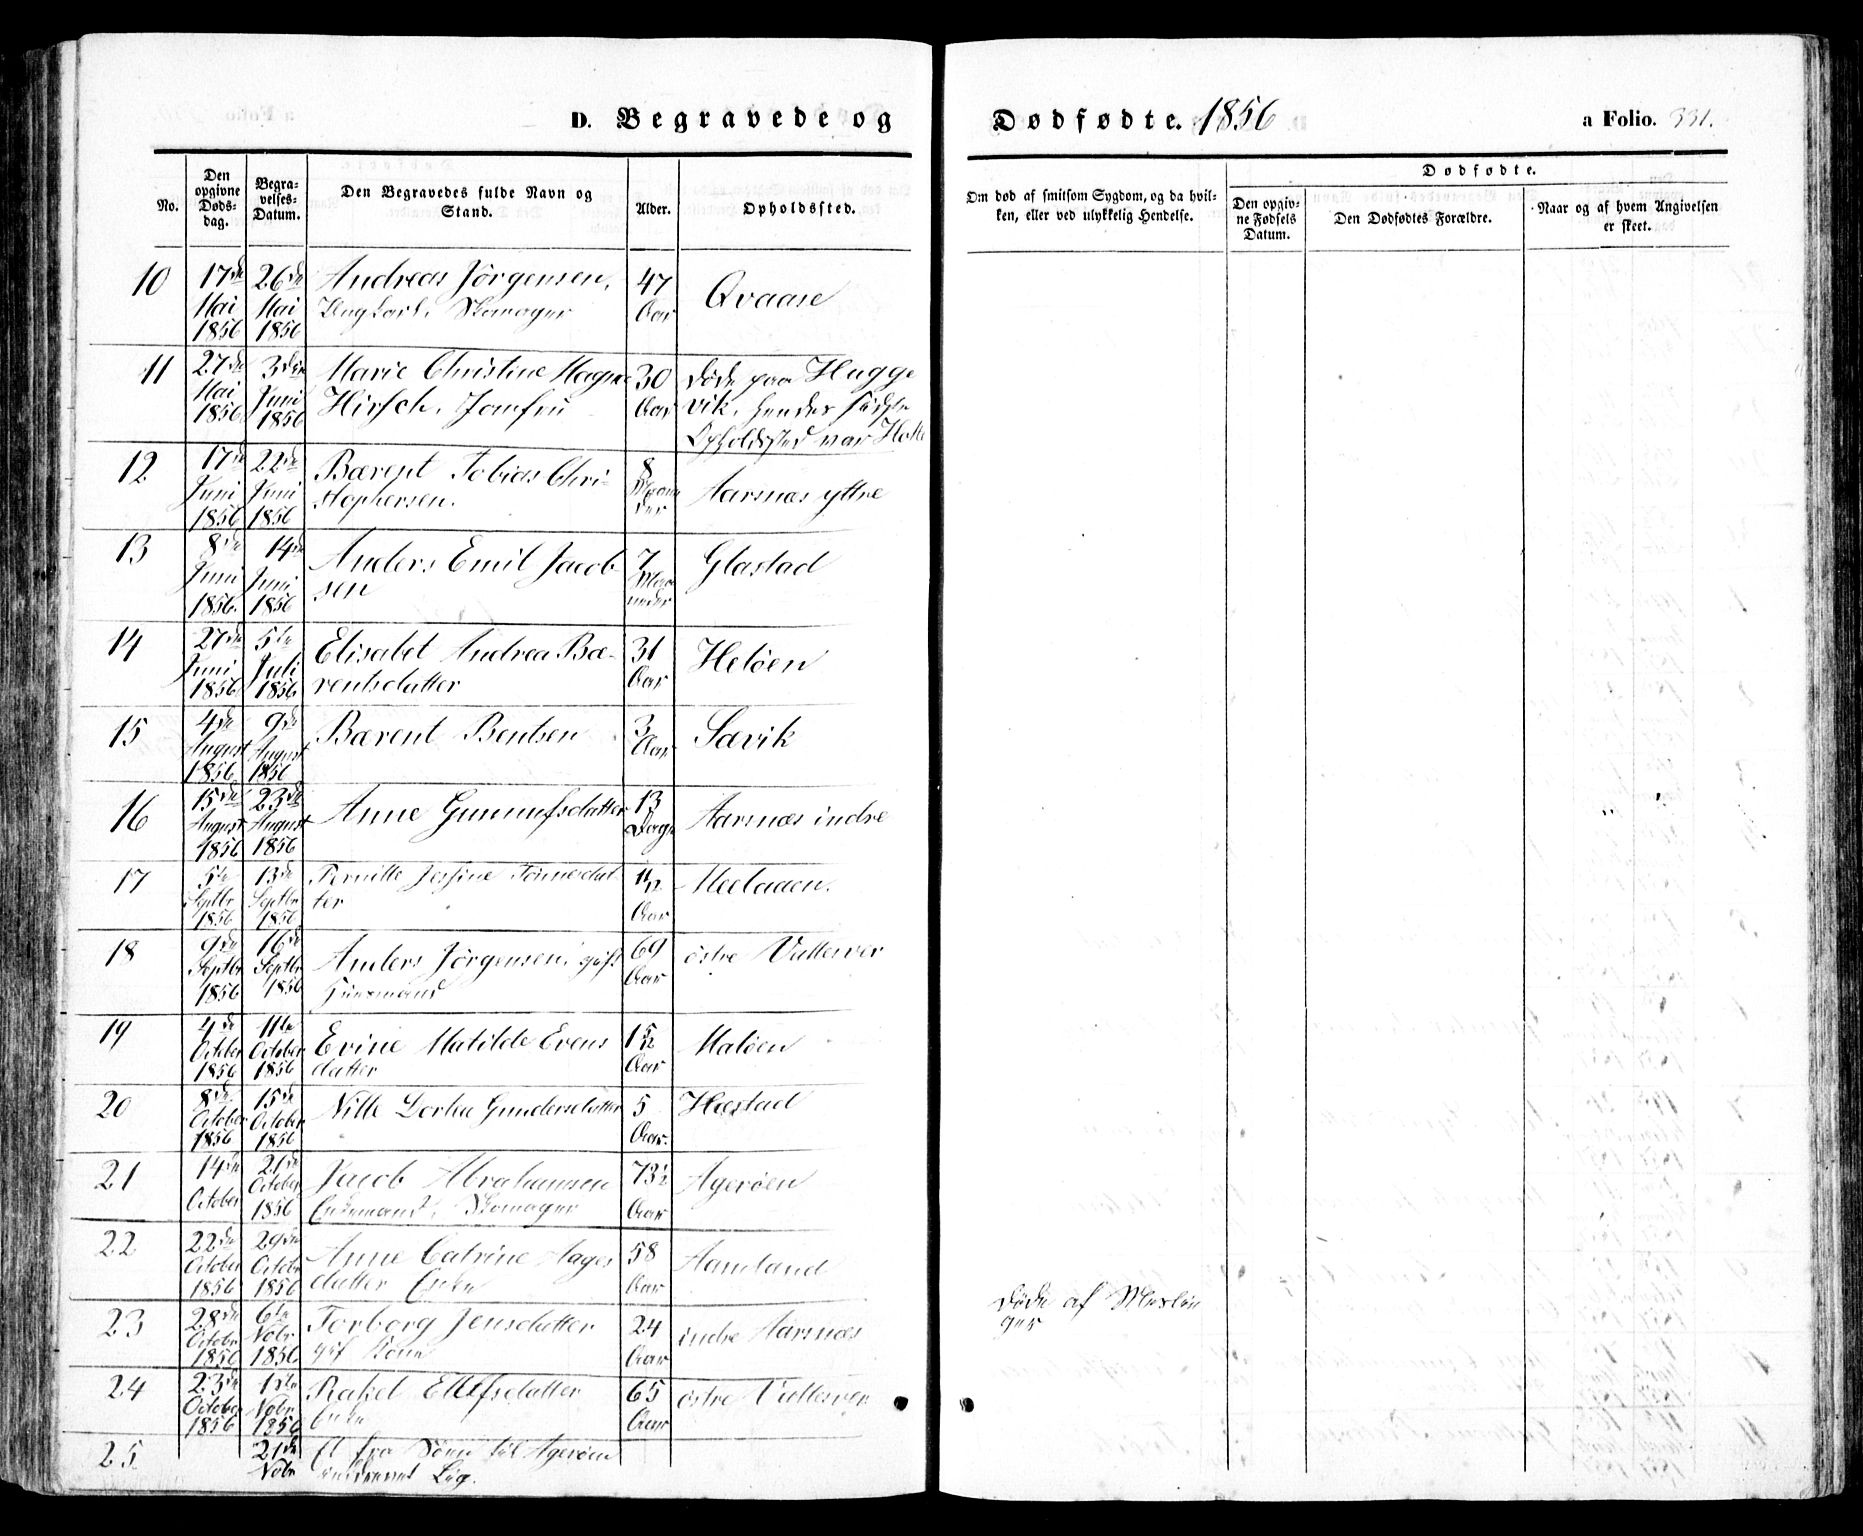 D. Begravede og Dødfødte. 1856 a Folio. 331.
No.
Den opgivne Døds-dag.
Begra-velses-Datum.
Den Begravedes fulde Navn og Stand.
Alder.
Opholdssted.
Om død af smitsom Sygdom, og da hvil-ken, eller ved ulykkelig Hendelse.
Dødfødte.
Den opgiv-ne Fødsels Datum.
Den Dødfødtes Forældre.
Naar og af hvem Angivelsen er skeet.
10 17de Mai 1856 26de Mai 1856 Andreas Jörgensen, Ungkarl, Skomager 47 Aar Qvaase
11 27de Mai 1856 3die Juni 1856 Marie Christine Magn Hirsch, Jomfru 30 Aar döde paa Hugge
vik, hendes sidste
Opholdssted var
12 17de Juni 1856 22de Juni 1856 Bærent Tobias Chri-
stophersen. 8 Maaneder Aarsnæs yttre
13 8de Juni 1856. 14de Juni 1856 Anders Emil Jacob
sen 7 Maaneder Glastad
14 27de Juni 1856 5te Juli 1856 Elisabet Andrea Bæ-
rentsdatter 31 Aar Helöen
15 4de August 1856 9de August 1856 Bærent Bentsen 3 Aar Sævik
16 15de August 1856 23de August 1856 Anne Gunnufsdatter 13 Dage Aarsnæs indre
17 5te Septbr 1856 13de Septbr 1856 Pernille Josfine Tönnesdat-
ter 11/12 Aar
18 9de Septbr 1856 16de Septbr 1856 Anders Jörgensen, gift
Huusmand 69 Aar östre Vallesver
19 4de October 1856 11te October 1856 Evine Matilde Evens
datter 1 5/12 Aar Malöen
20 8de October 1856 15de October 1856 Nille Dorthea Gundersdatter 5 Aar. Hæstad
21 14de October 21de October 1856 Jacob Abrahamsen
Enkemand, Skomager 73½ Aar Ageröen
22 22de October 1856 29de Octobr 1856 Anne Catrine Aages
datter Enke 58 Aar Aamland
23 28de Octobr 1856 6te Novbr 1856 Torborg Jensdatter
gift Kone 24 Aar indre Aarsnæs döde af Meslin
ger
24 23de October 1856 1ste Novbr 1856 Rakel Ellefsdatter
Enke 65 Aar östre Vallesver
25 21de Novbr Et fra Söen til Ageröen
inddrevet Liig.